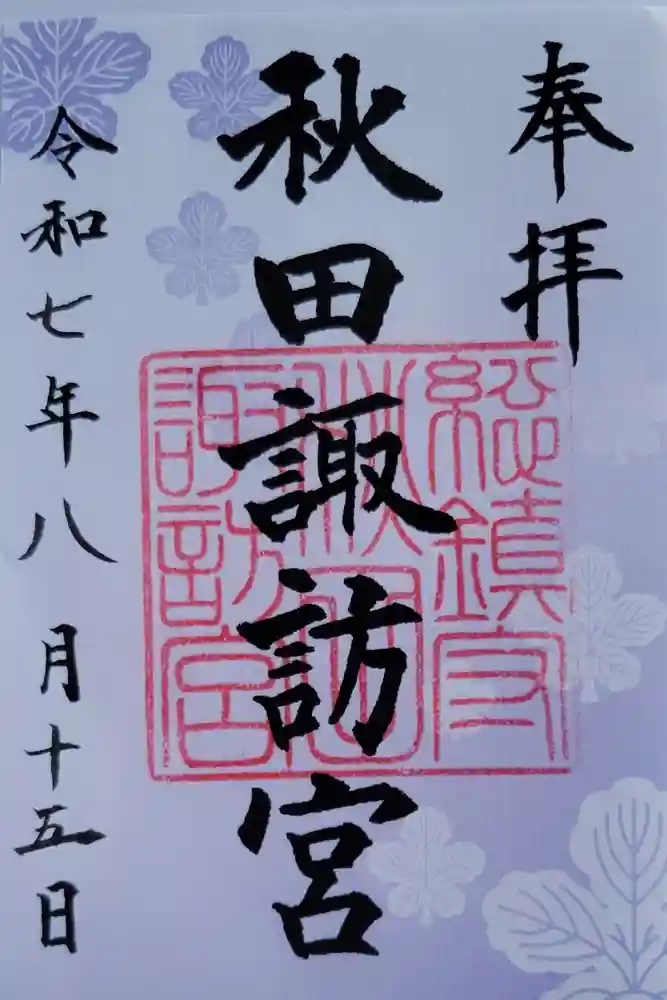 奉拝
秋田諏訪宮
総鎮守
秋田
諏訪宮
令和七年八月十五日